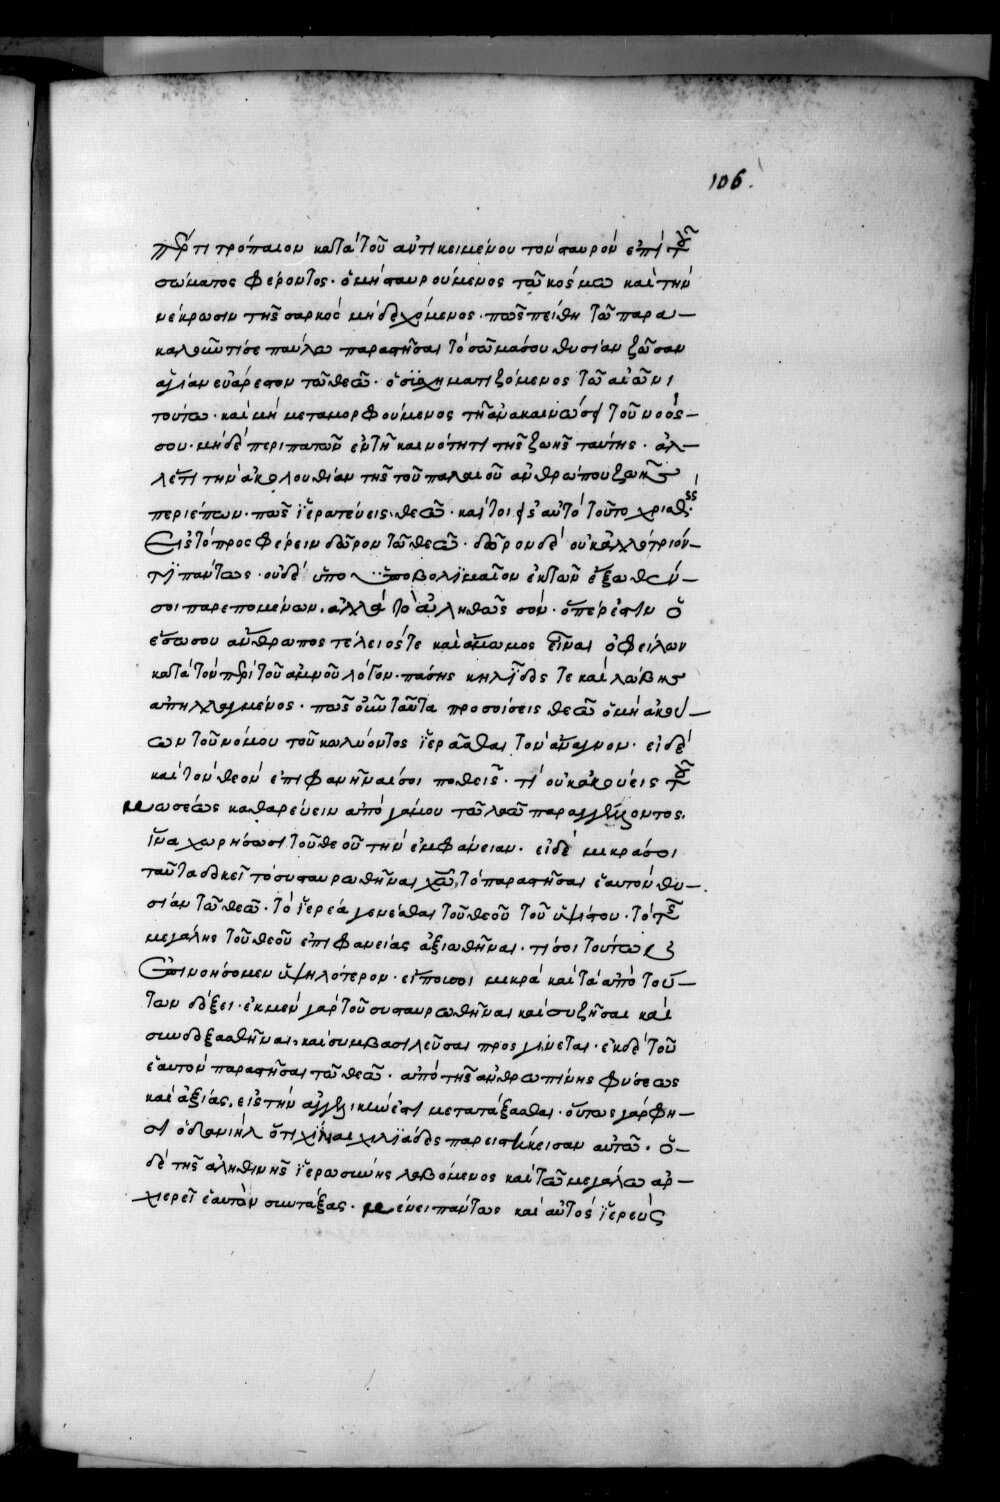 106.
τι τρόπαιον κατὰ τοῦ ἀντικειμένου τὸν σταυρὸν ἐπὶ τοῦ
σώματος φέροντος· ὁ μὴ σταυρούμενος τῶ κόσμω καὶ τὴν
νέκρωσιν τῆς σαρκὸς μὴ δεχόμενος· πῶς πείθη τῶ παρα–
καλοῦντί σε παύλω παραστῆσαι τὸ σῶμά σου θυσίαν ζῶσαν
ἁγίαν εὐάρεστον τῶ θεῶ· ὁ συσχηματιζόμενος τῶ αἰῶνι
τούτω· καὶ μὴ μεταμορφούμενος τῆ ἀνακαινώσει τοῦ νοός–
σου· μὴ δὲ περιπατῶν ἐν τῆ καινότητι τῆς ζωῆς ταύτης· ἀλ–
λ' ἔτι τὴν ἀκολουθίαν τῆς τοῦ παλαιοῦ ἀνθρώπου ζωῆς
περιέπων· πῶς ἱερατεύεις θεῶ· καίτοι εἰς αὐτὸ τοῦτο χρισθεὶς
εἰς τὸ προσφέρειν δῶρον τῶ θεῶ· δῶρον δὲ οὐκ ἀλλότριόν–
τι πάντως· οὐδὲ ὑποβολιμαῖον ἐκ τῶν ἔξωθέν–
σοι παρεπομένων· ἀλλὰ τὸ ἀληθῶς σόν· ὅπέρ ἐστιν ὁ
ἔσω σου ἄνθρωπος τέλειός τε καὶ ἄμωμος εἶναι ὀφείλων
κατὰ τὸν περὶ τοῦ ἀμνοῦ λόγον· πάσης κηλῖδός τε καὶ λώβης
ἀπηλλαγμένος· πῶς οὖν ταῦτα προσοίσεις θεῶ ὁ μὴ ἀκού–
ων τοῦ νόμου τοῦ κωλύοντος ἱερᾶσθαι τὸν ἄναγνον· εἰ δὲ
καὶ τὸν θεὸν ἐπιφανῆναί σοι ποθεῖς· τί οὐκ ἀκούεις τοῦ
μωσέως καθαρεύειν ἀπὸ γάμου τῶ λαῶ παραγγέλλοντος·
ἵνα χωρήσωσι τοῦ θεοῦ τὴν ἐμφάνειαν· εἰ δὲ μικρά σοι
ταῦτα δοκεῖ τὸ συσταυρωθῆναι χῶ, τὸ παραστῆσαι ἑαυτὸν θυ–
σίαν τῶ θεῶ· τὸ ἱερέα γενέσθαι τοῦ θεοῦ τοῦ ὑψίστου· τὸ τῆς
μεγάλης τοῦ θεοῦ ἐπιφανείας ἀξιωθῆναι· τί σοι τούτων
ἐπινοήσομεν ὑψηλότερον· εἴπερ σοι μικρὰ καὶ τὰ ἀπὸ τού–
των δόξει· ἐκ μὲν γὰρ τοῦ συσταυρωθῆναι καὶ συζῆσαι καὶ
συνδοξασθῆναι, καὶ συμβασιλεῦσαι προσγίνεται· ἐκ δὲ τοῦ
ἑαυτὸν παραστῆσαι τῶ θεῶ· ἀπὸ τῆς ἀνθρωπίνης φύσεως
καὶ ἀξίας, εἰς τὴν ἀγγελικὴν ἔστι μετατάξασθαι· οὕτως γάρ φη–
σι ὁ δανιὴλ ὅτι χίλιαι χιλιάδες παρειστήκεισαν αὐτῶ· ὁ–
δὲ τῆς ἀληθινῆς ἱερωσύνης λαβόμενος καὶ τῶ μεγάλω ἀρ–
χιερεῖ ἑαυτὸν συντάξας· μένει πάντως καὶ αὐτὸς ἱερεὺς